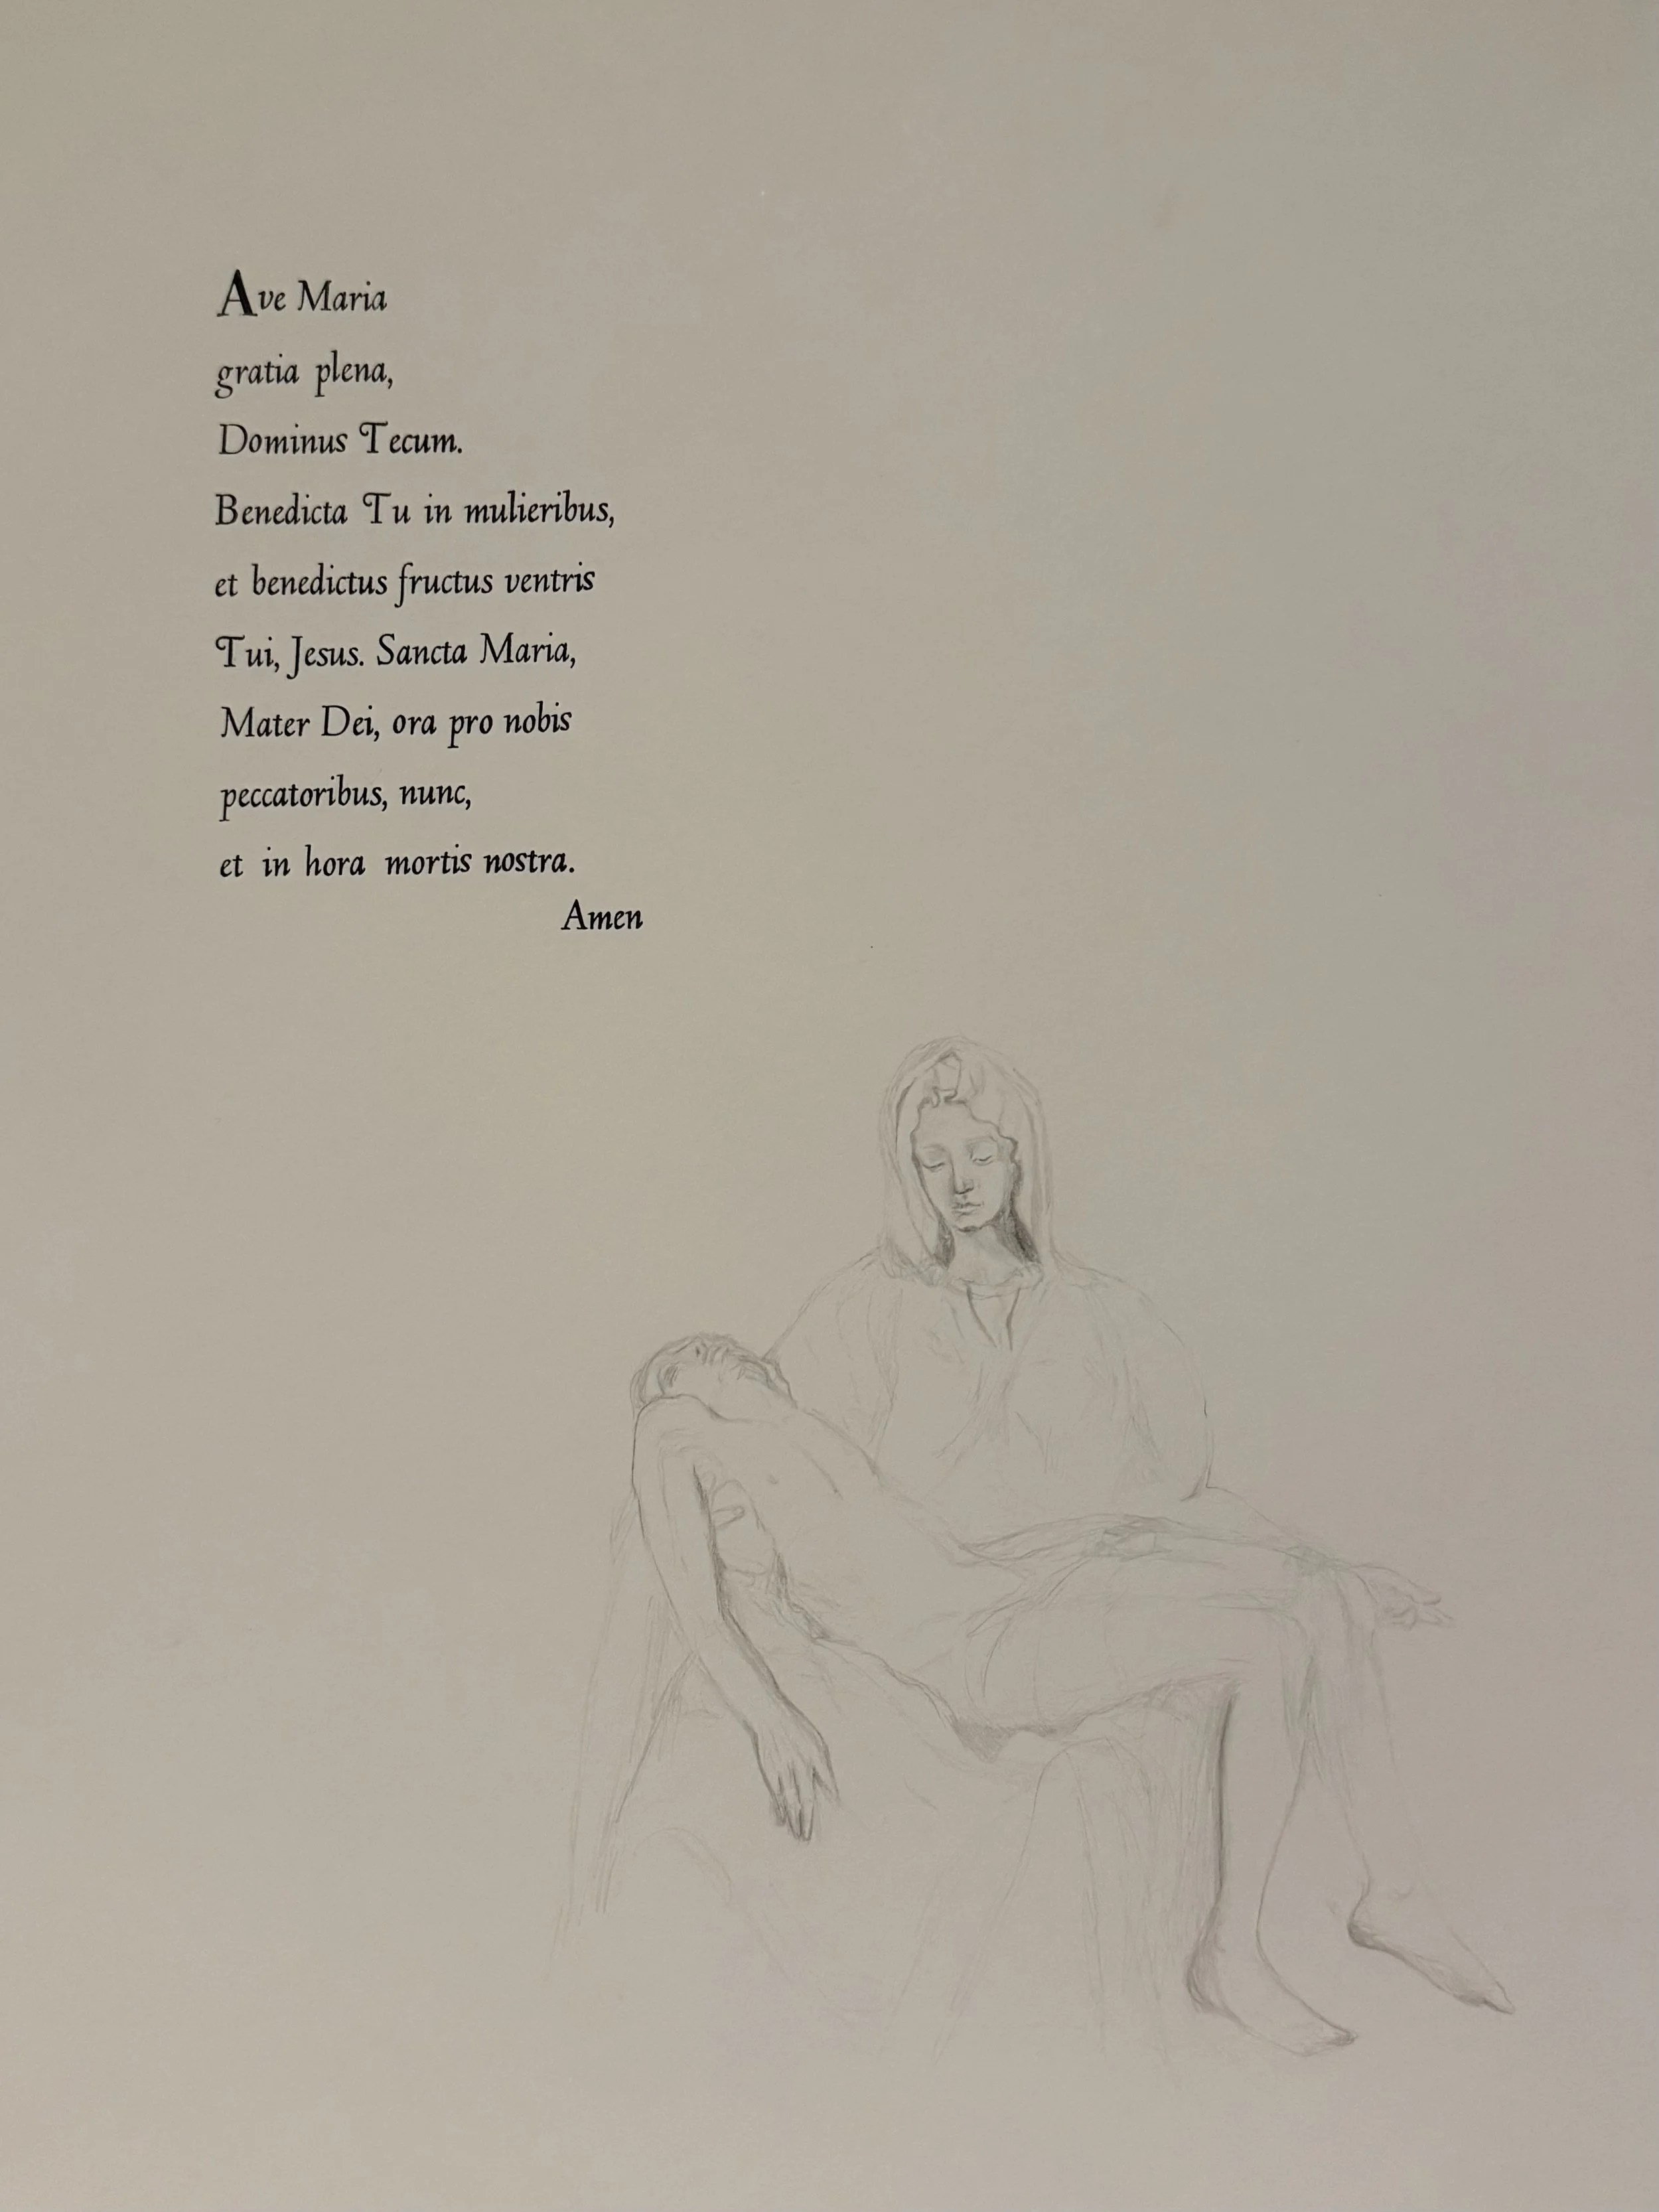 Ave Maria
gratia plena,
Dominus Tecum.
Benedicta Tu in mulieribus,
et benedictus fructus ventris
Tui, Jesus. Sancta Maria,
Mater Dei, ora pro nobis
peccatoribus, nunc,
et in hora mortis nostra.
Amen